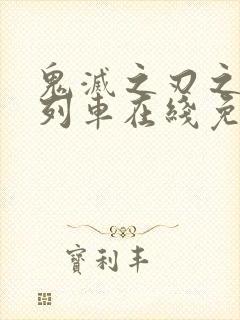 鬼滅之刃之
列車在綫免
寶利丰